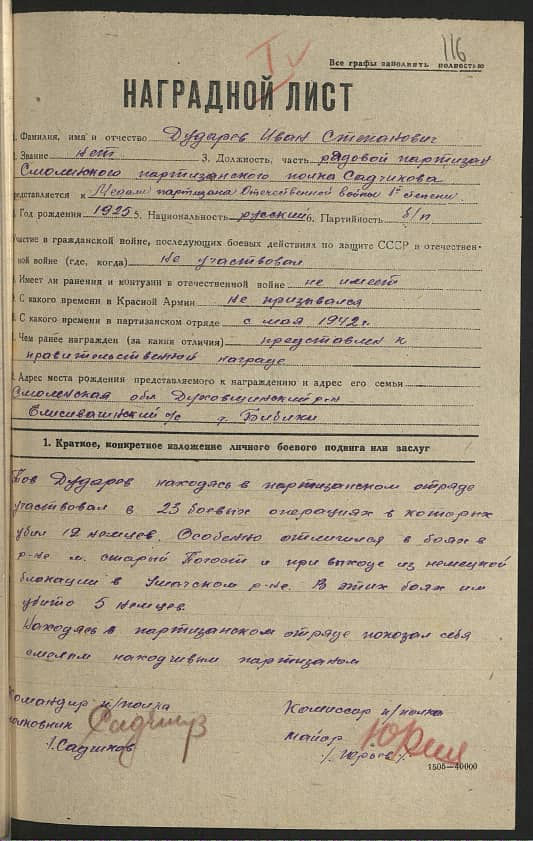 116
IV
Все графы заполнить полностью
НАГРАДНОЙ ЛИСТ
1. Фамилия, имя и отчество Дударев Иван Степанович
2. Звание нет 3. Должность, часть рядовой партизан
Смоленского партизанского полка Садчикова
редставляется к Медали партизана Отечественной войны 1й степени
Год рождения 1925 5. Национальность русский 6. Партийность б/п
Участие в гражданской войне, последующих боевых действиях по защите СССР в отечествен-
ной войне (где, когда) Не участвовал
Имеет ли ранения и контузии в отечественной войне не имеет
С какого времени в Красной Армии Не призывался
С какого времени в партизанском отряде с мая 1942 г.
Чем ранее награжден (за какия отличия) представлен к
правительственной награде
Адрес места рождения представляемого к награждению и адрес его семьи
Смоленская обл Духовщинский р-н
с/с д. Бибики
1. Краткое, конкретное изложение личного боевого подвига или заслуг
Тов Дударев находясь в партизанском отряде
участвовал в 23 боевых операциях в которых
убил 12 немцев. Особенно отличился в боях в
р-не м. старый Погост и при выходе из немецкой
блокации в Ушачском р-не. В этих боях им
убито 5 немцев.
Находясь в партизанском отряде показал себя
смелым находчивым партизаном
Командир п/полка Комиссар п/полка
полковник майор
/.Садчиков /.Юрьев/.
1505—40000